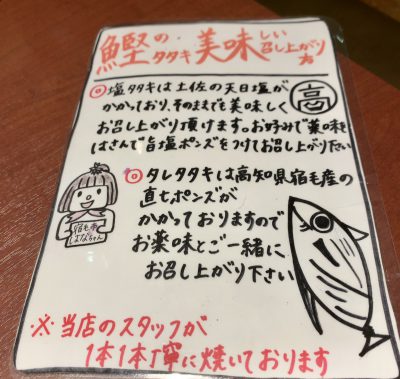 鰹のタタキ美味しい召し上がり方
◎塩タタキは土佐の天日塩が
かかっており、そのままでも美味しく
お召し上がり頂けます。お好みで薬味を
はさんで旨塩ポンズをつけてお召し上がり下さい
高
◎タレタタキは高知県宿毛産の
直七ポンズが
かかっておりますので
お薬味とご一緒に
お召し上がり下さい
宿毛市
はなちゃん
※当店のスタッフが
1本1本丁寧に焼いております